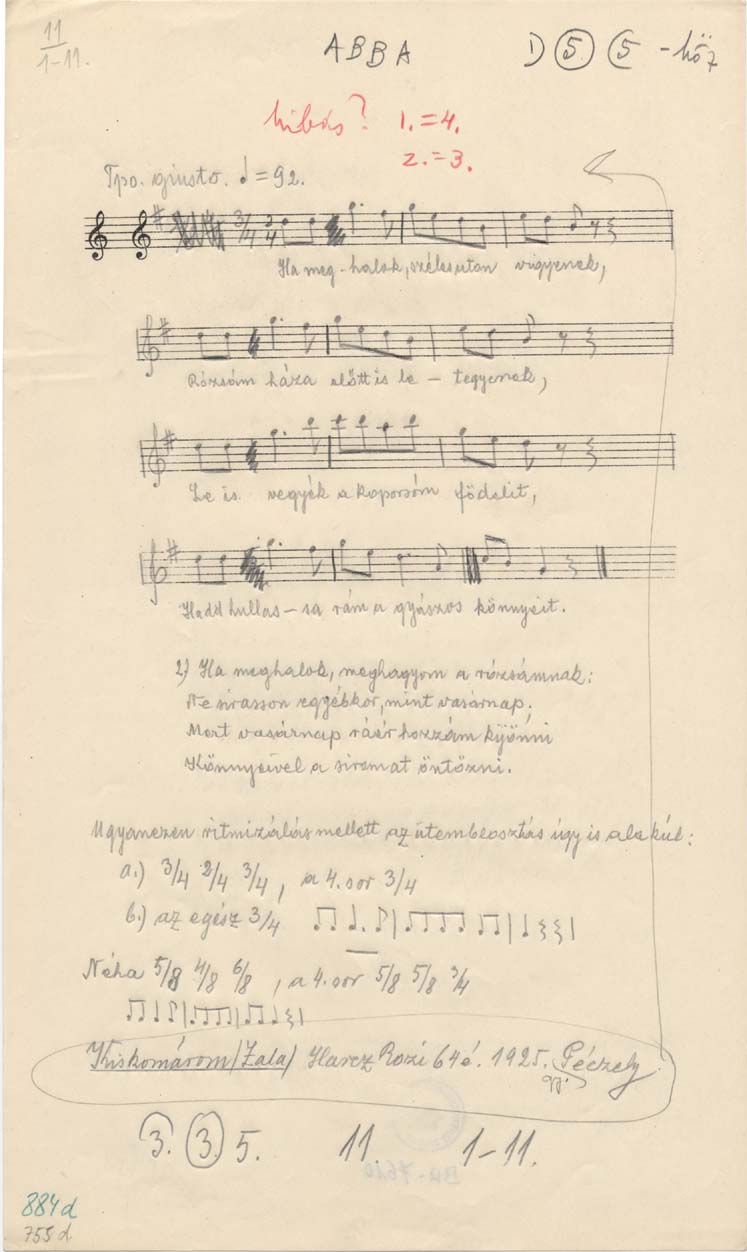 11
1-11.
ABBA
1) 5 5 - höz
hibás? 1.=4.
2.=3.
Tpo. giusto. ♩=92.
3/4 2/4
Ha meg-halok, széles uton vigyenek,
Rózsám háza előtt is le - tegyenek,
Le is vegyék a koporsóm födelit,
Hadd hullas - sa rám a gyászos könnyeit.
2) Ha meghalok, meghagyom a rózsámnak:
Ne sirasson egyébkor, mint vasárnap,
Mert vasárnap ráér hozzám kijönni
Könnyeivel a siromat öntözni.
Ugyanezen ritmizálás mellett az ütembeosztás úgy is alakúl:
a.) 3/4 2/4 3/4, a 4. sor 3/4
b.) az egész 3/4
Néha 5/8 4/8 6/8, a 4. sor 5/8 5/8 3/4
Kiskomárom (Zala) Harcz Rozi 64 é. 1925. Péczely
gy.
3. 3. 5. 11. 1-11.
884d
755d